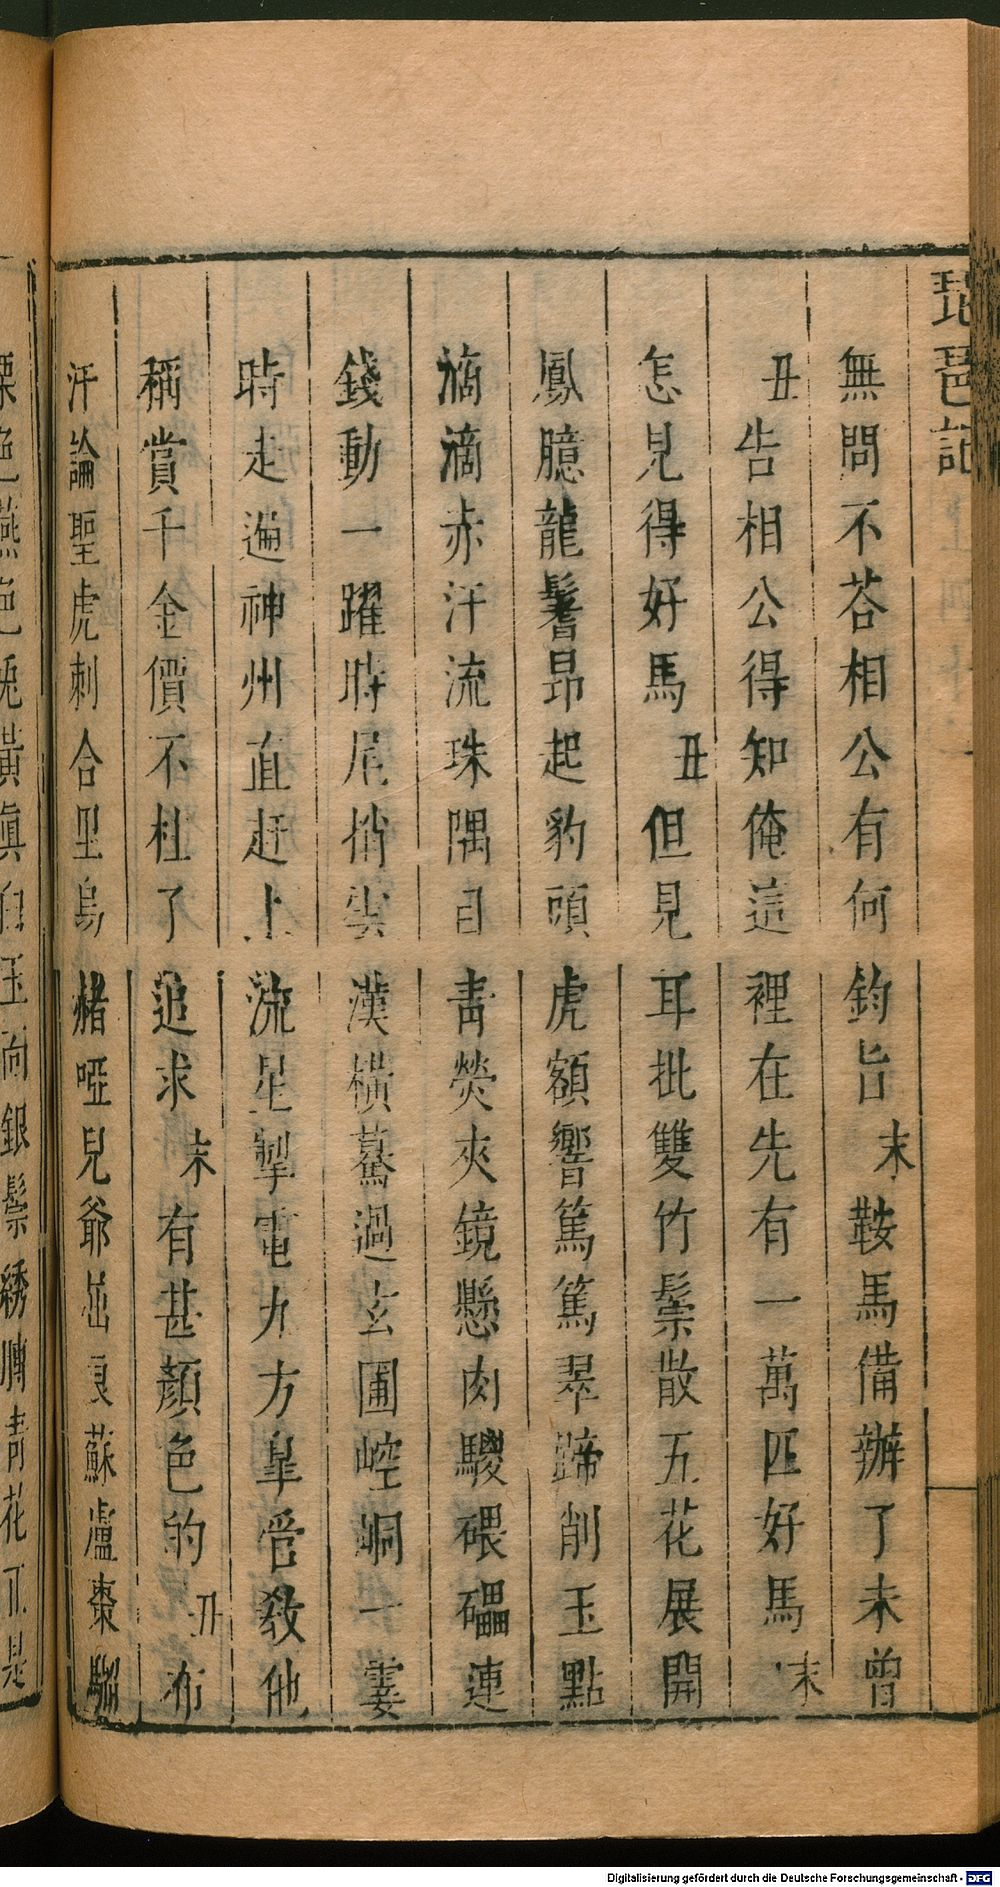 琵琶記
無問不荅相公有何鈞旨末鞍馬備辦了未曾
丑告相公得知俺這裡在先有一萬匹好馬末
怎見得好馬丑但見耳批雙竹鬃散五花展開
鳳臆龍鬐昂起豹頭虎額響篤篤翠蹄削玉點
滴滴赤汗流珠隅目青熒夾鏡懸肉駿碨礧連
錢動一躍時尾捎雲漢橫驀過玄圃崆峒一霎
時走遍神州直赶上流星掣電九方皐管教他
稱賞千金價不枉了追求末有甚顏色的丑布
汗論聖虎刺合里烏赭啞兒爺屈良蘇盧棗騮
栗色燕色兔黃真白玉面銀鬃綉膊青花正是
Digitalisierung gefördert durch die Deutsche Forschungsgemeinschaft - DFG